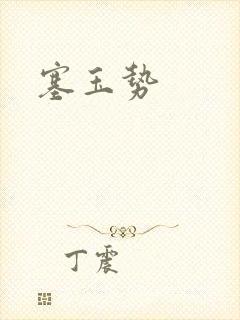 塞玉势
丁震